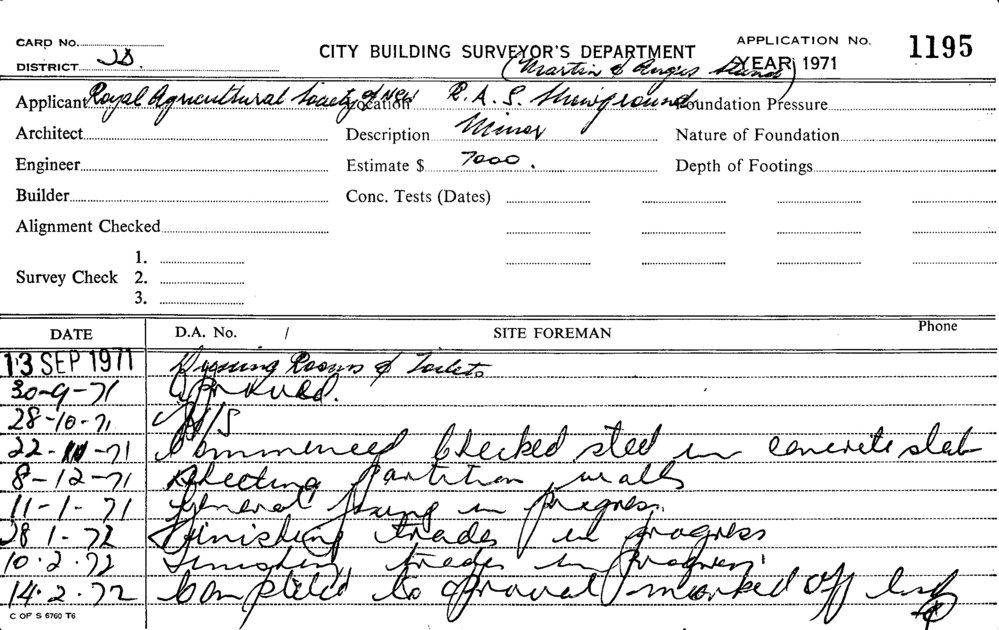 CARD No.
CITY BUILDING SURVEYOR'S DEPARTMENT
APPLICATION No. 1195
DISTRICT
(Martin & Angus Stand)
YEAR 1971
Applicant Royal Agricultural Society of NSW Location R.A.S. Showground Foundation Pressure
Architect Description Minor Nature of Foundation
Engineer Estimate $ 7000. Depth of Footings
Builder Conc. Tests (Dates)
Alignment Checked
1.
Survey Check 2.
3.
DATE D.A. No. / SITE FOREMAN Phone
13 SEP 1971 Dressing Rooms & Toilets
30-9-71 Approved.
28-10-71 N/S
22-11-71 Commenced Checked steel in concrete slab
8-12-71 Erecting partition walls
11-1-71 General fixing in progress.
28 1-72 Finishing trades in progress
10.2.72 Finishing trades in progress
14.2.72 Completed to approval marked off
C OF S 6760 T6